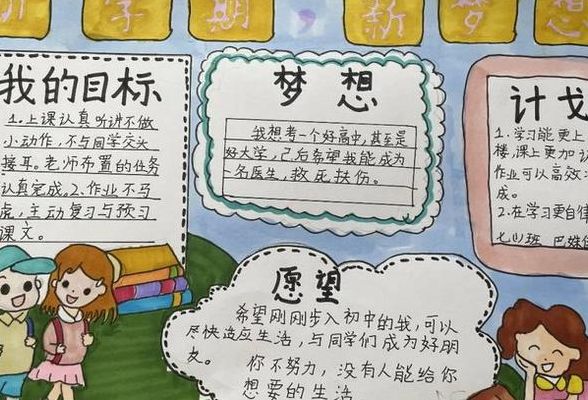 新学期，新梦想
我的目标
1.上课认真听讲不做
小动作，不与同学交头
接耳。老师布置的任务
认真完成。2.作业不马
虎，主动复习与预习
课文。
梦想
我想考一个好高中，甚至是
好大学，己后希望我能成为
一名医生，救死扶伤。
计划
1.学习能更上
楼，课上更加
作业可以高效
成。
2.在学习更自律
愿望
希望刚刚步入初中的我，可以
尽快适应生活，与同学们成为好朋
友。
你不努力，没有人能给你
想要的生活